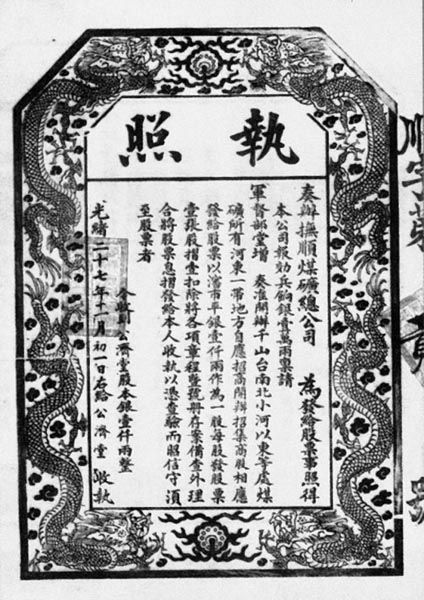 執照
奏辦撫順煤礦總公司 為發給股票事照得
本公司報効兵餉銀壹萬兩稟請
軍督部堂增 奏准開辦千山台南北小河以東等處煤
礦所有河東一帶地方自應招商開辦招集商股相應
發給股票以瀋市平銀壹仟兩作為一股每股發股票
壹張股摺壹扣除將各項章程暨號冊存案備查外理
合將股票息摺發給本人收執以憑查驗而昭信守須
至股票者
公濟堂股本銀壹仟兩整
光緒二十七年十一月初一日右給公濟堂 收執